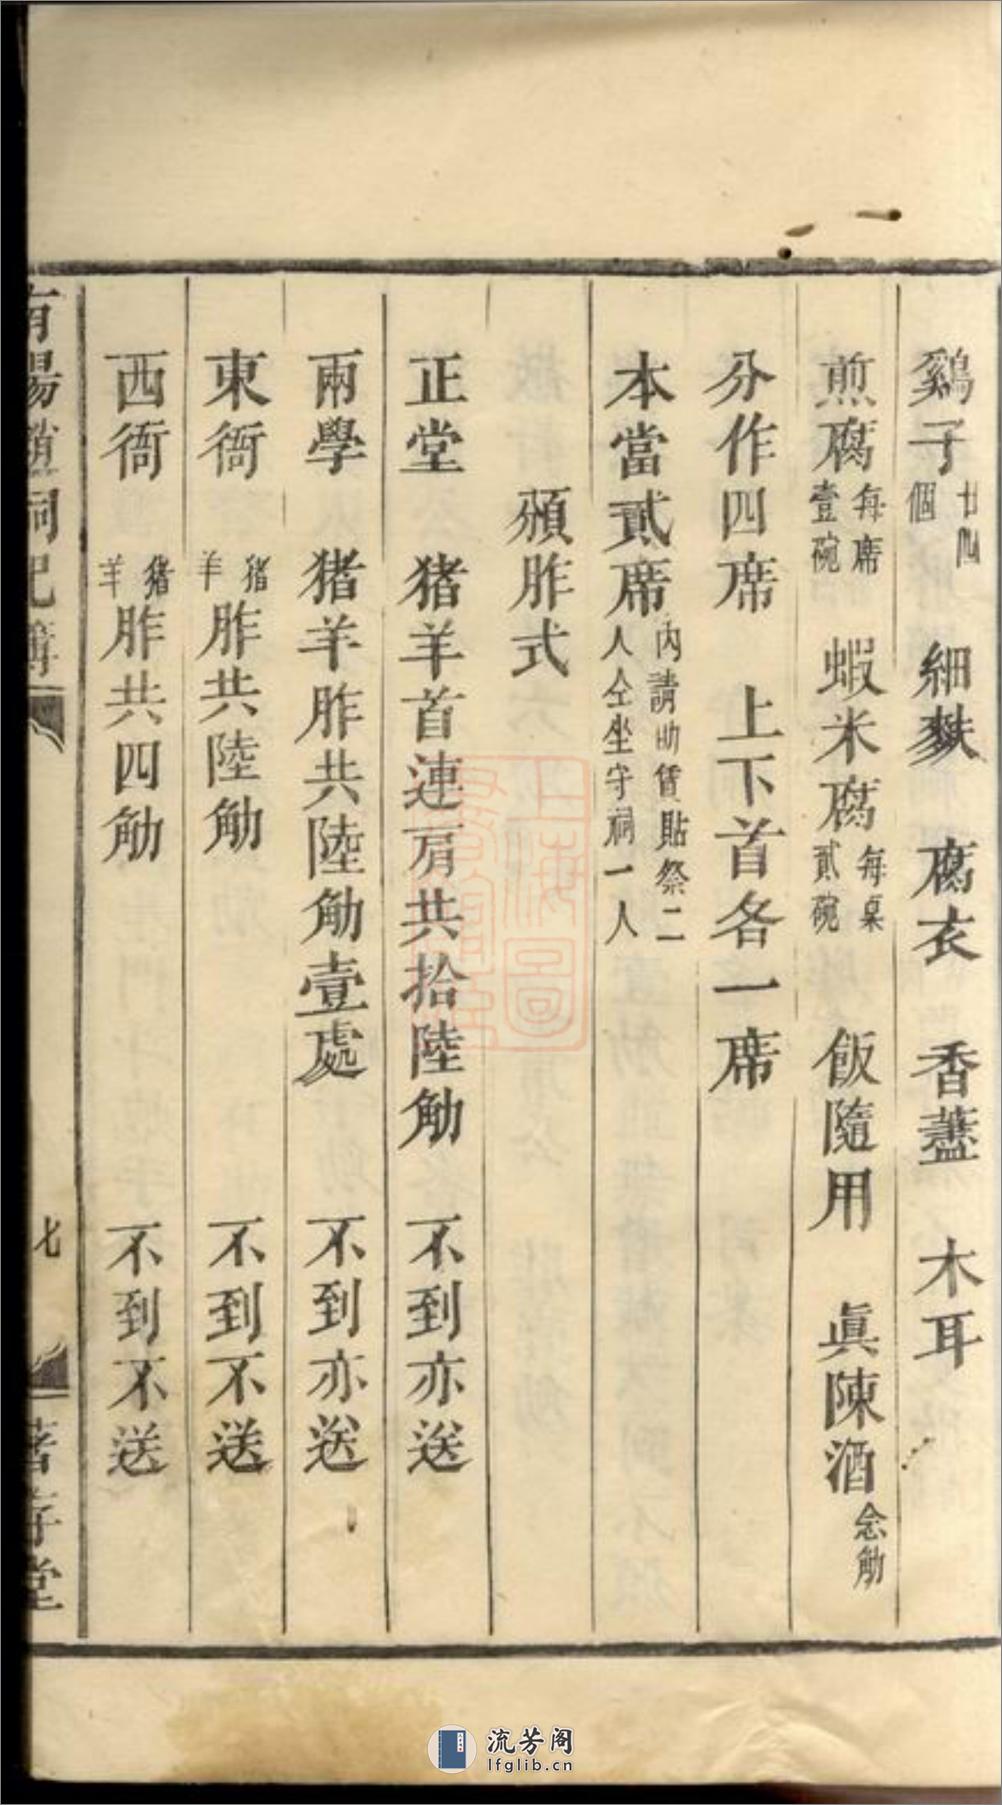 鷄子廿四個　細麩　腐衣　香蕈　木耳
煎腐每席壹碗　蝦米腐每桌貳碗　飯隨用　眞陳酒念觔
分作四席　上下首各一席
本當貳席內請助賃貼祭二人仝坐守祠一人
頒胙式
正堂　猪羊首連肩共拾陸觔　不到亦送
兩學　猪羊胙共陸觔壹處　不到亦送
東衙　猪羊胙共陸觔　不到不送
西衙　猪羊胙共四觔　不到不送
祠祀簿
七
著存堂
上海圖
流芳阁
lfglib.cn